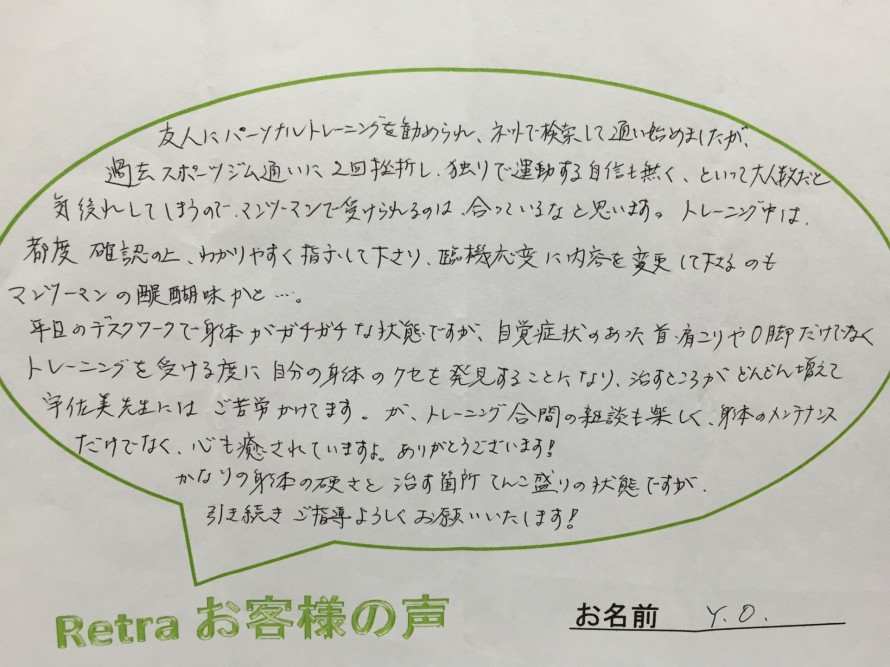 友人にパーソナルトレーニングを勧められ、ネットで検索して通い始めましたが、
過去スポーツジム通いに2回挫折し、独りで運動する自信も無く、といって大人数だと
気後れしてしまうので、マンツーマンで受けられるのは、合っているなと思います。トレーニング中は、
都度 確認の上、わかりやすく指示して下さり、臨機応変に内容を変更して下さるのも
マンツーマンの醍醐味かと…。
平日のデスクワークで身体がガチガチな状態ですが、自覚症状のあった首・肩こりやO脚だけでなく
トレーニングを受ける度に自分の身体のクセを発見することになり、治すところがどんどん増えて
宇佐美先生には ご苦労かけてます。が、トレーニング合間の雑談も楽しく、身体のメンテナンス
だけでなく、心も癒されていますよ。ありがとうございます!
かなりの身体の硬さと 治す箇所てんこ盛りの状態ですが、
引き続きご指導よろしくお願いいたします!
Retra お客様の声
お名前 Y.O.